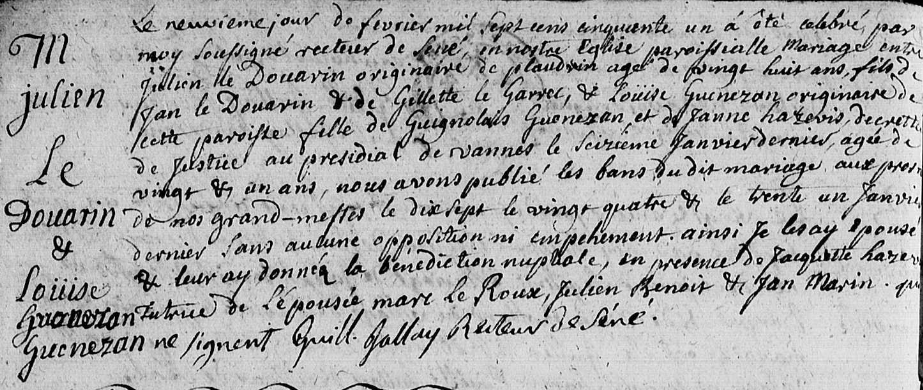 M
julien
Le
Douarin
&
Loüise
Guenezan
Guenezan
Le neuvieme jour de fevrier mil sept cens cinquante un á été celebré, par
moy soussigné recteur de Sene, en nostre Eglise paroissialle Mariage entre
Julien le Douarin originaire de plaudrin agé de vingt huit ans, fils de
Jan le Douarin & de Gillette le Garrec, & Loüise Guenezan originaire de
cette paroisse fille de Guignolais Guenezan et de Janne hazevis, decretté
de Justice au presidial de vannes le seizième Janvier dernier, agée de
vingt & un ans, nous avons publié les bans du dit mariage aux prosn
de nos grand-messes le dix sept le vingt quatre & le trente un Janvie
dernier sans aucune opposition ni empehement. ainsi Je les ay epousé
& leur ay donnée la bénédiction nuptiale, en presence de Jacquette hazev
Tutrice de l'épousée marc le Roux, Julien Benoit & Jan Marin. qui
ne signent Guill. Jallay Recteur de Séné.